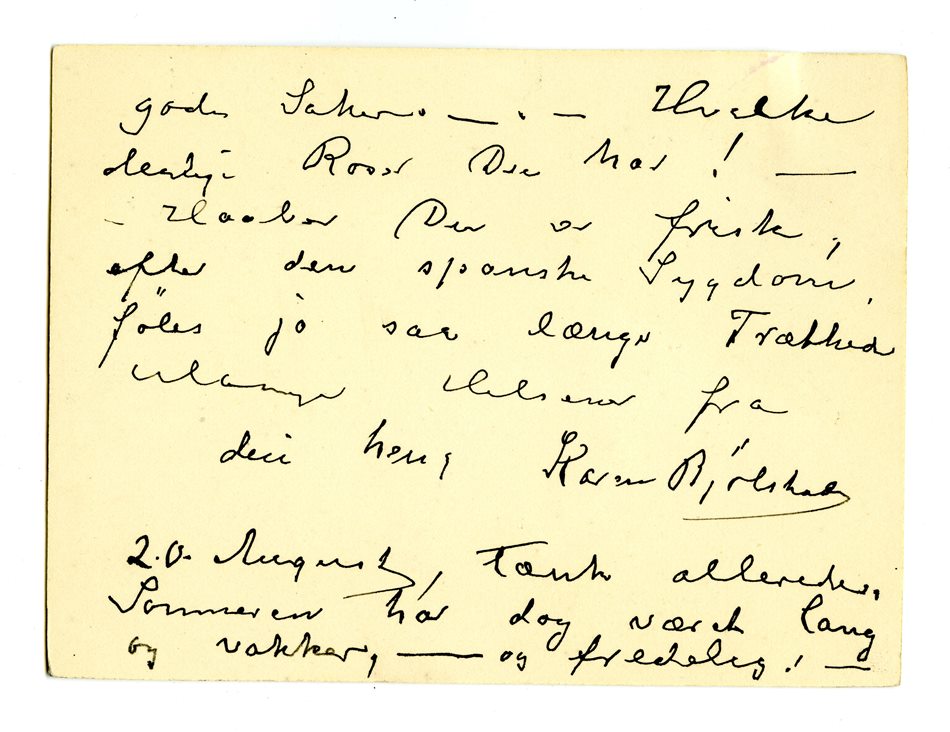 gode Saker. — . — Hvilke
deilige Roser Du har! —
– Haaber Du er frisk,
efter den spanske Sygdom,
föles jo saa længe Træthed
Mange Helsener fra
din heng Karen Björlstad
20. August, Tænk allerede.
Sommeren har dog været lang
og vakker, — og fredelig! —